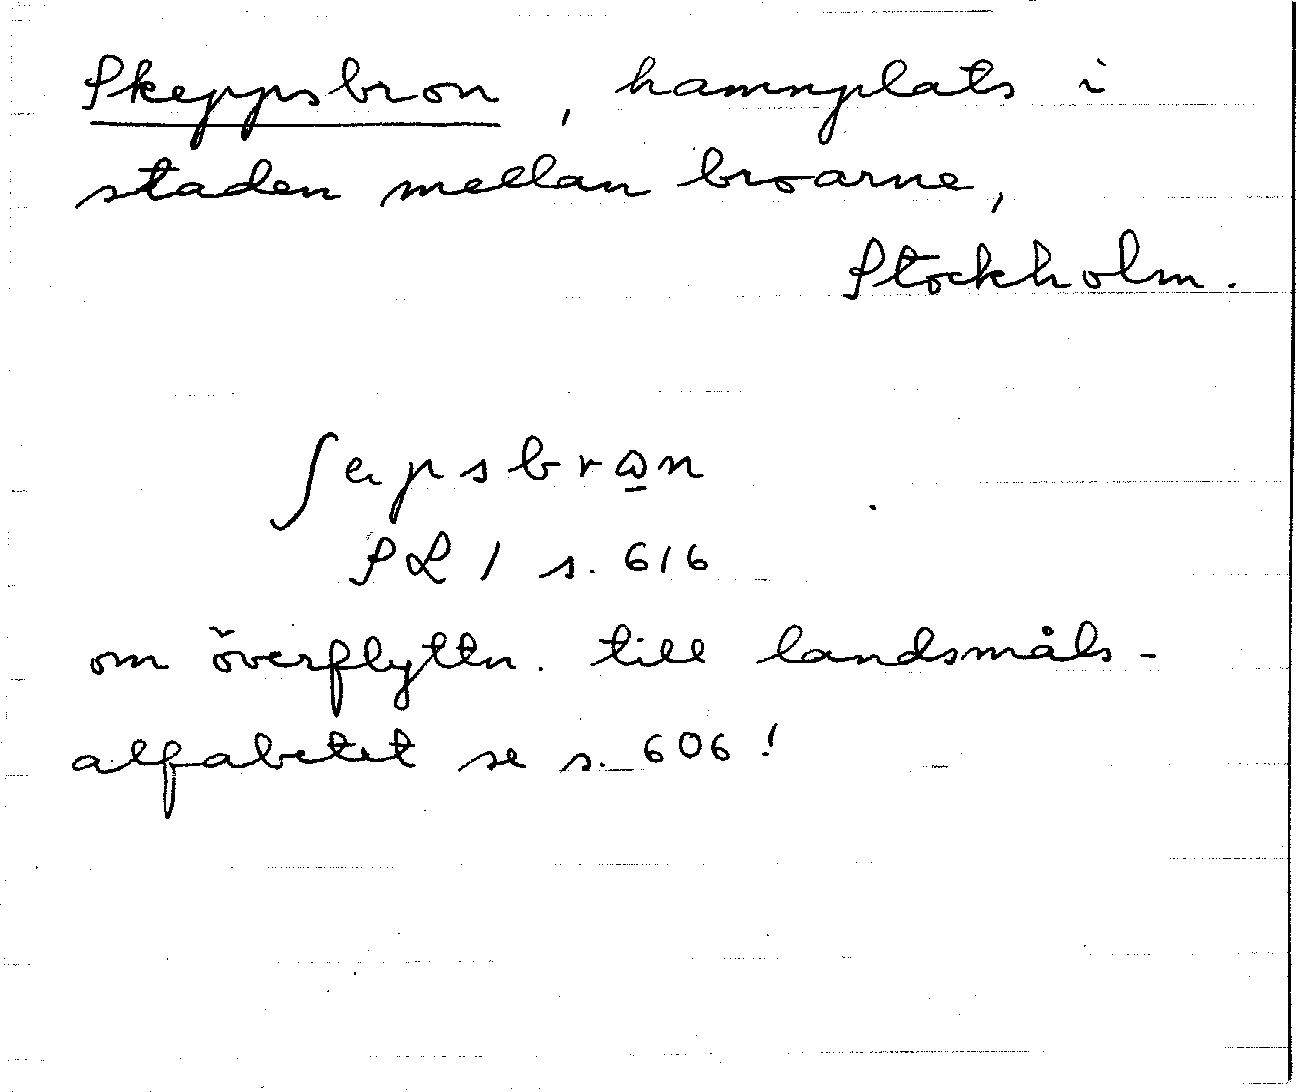 Skeppsbron, hamnplats i
staden mellan broarne,
Stockholm.
ʃepsbrω̲n
SL 1 s. 616
om överflyttn. till landsmåls-
alfabetet se s. 606!